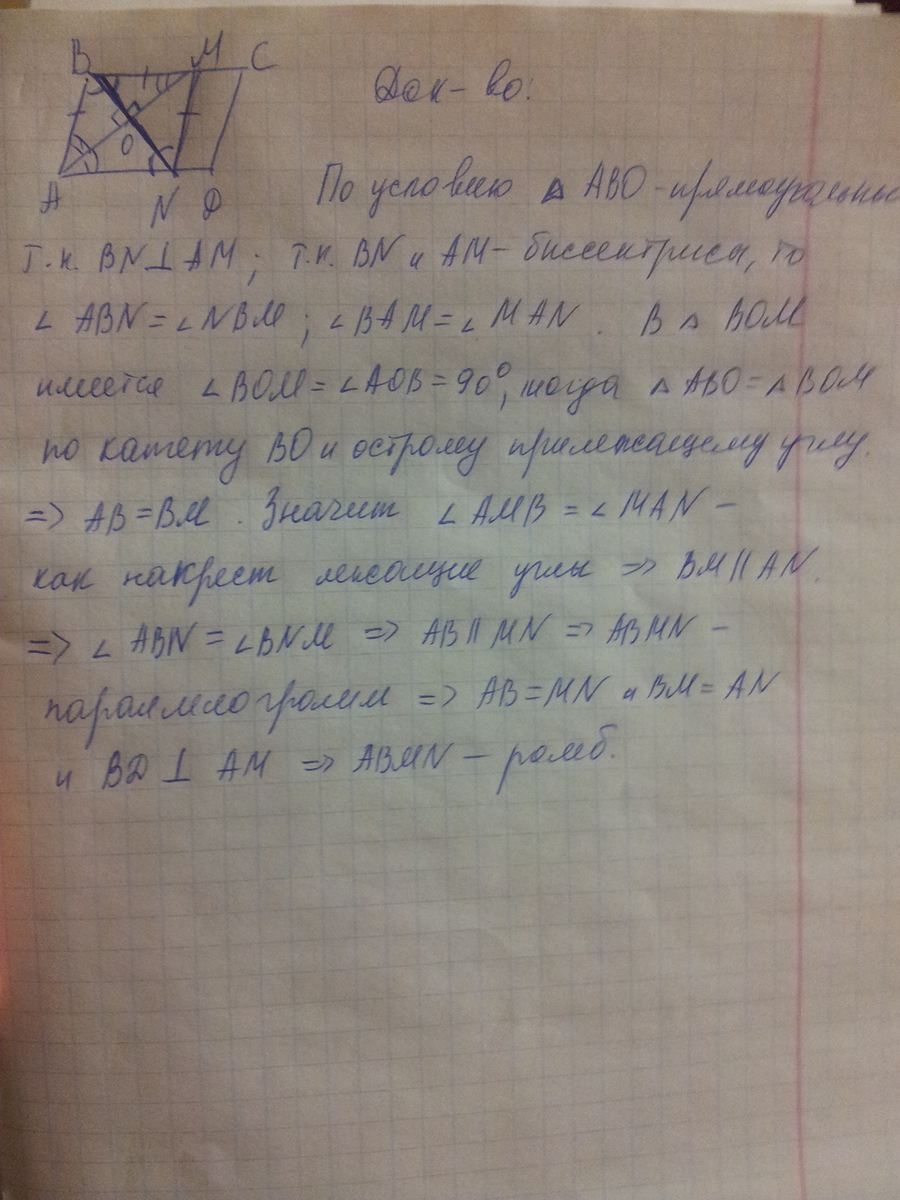 B M C
O
A N D
Док-во:
По условию △ ABO - прямоугольный
т.к. BN⊥AM; т.к. BN и AM - биссектрисы, то
∠ ABN = ∠NBM ; ∠BAM = ∠ MAN . В △ BOM
имеется ∠BOM = ∠AOB = 90°, тогда △ ABO = △ BOM
по катету BO и острому прилежащему углу.
=> AB = BM . Значит ∠ AMB = ∠ MAN -
как накрест лежащие углы => BM || AN.
=> ∠ ABN = ∠BNM => AB || MN => ABMN -
параллелограмм => AB = MN и BM = AN
и BD ⊥ AM => ABMN - ромб.